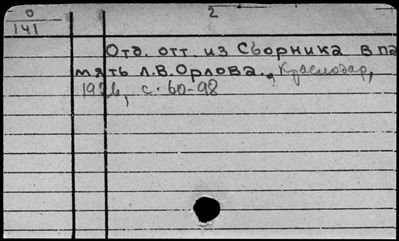 О
141
2
Отд. отт. из Сборника в па
мять Л.В.Орлова., Краснодар,
1926, с. 60-98